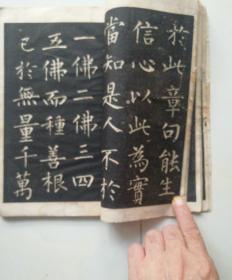 於此章句能生
信心以此為實
當知是人不於
一佛二佛三四
五佛而種善根
已於無量千萬